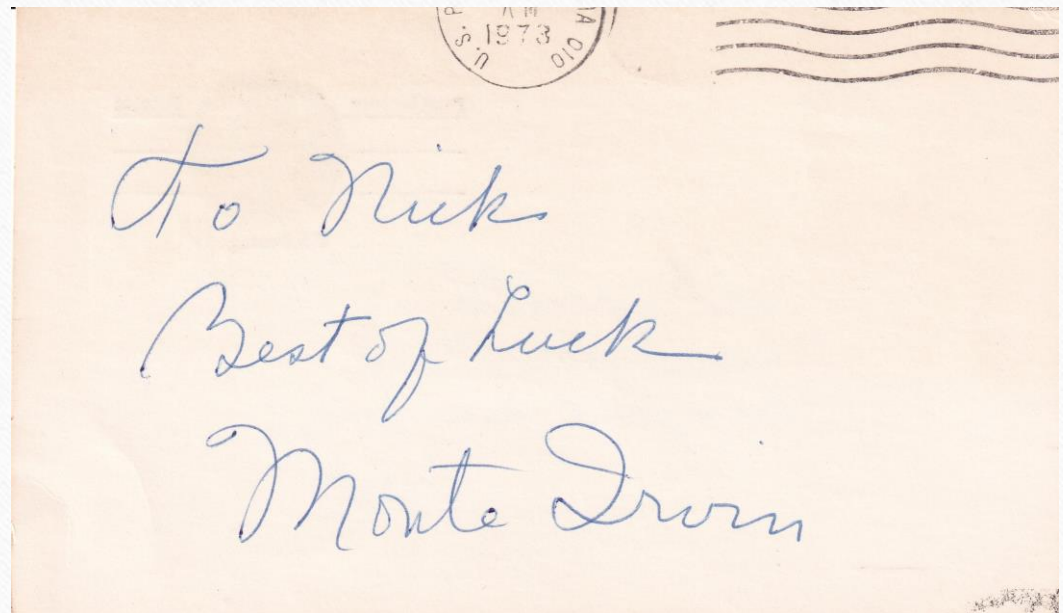 AM
1973
U.S. P
MA 010
To Nick
Best of Luck
Monte Irvin